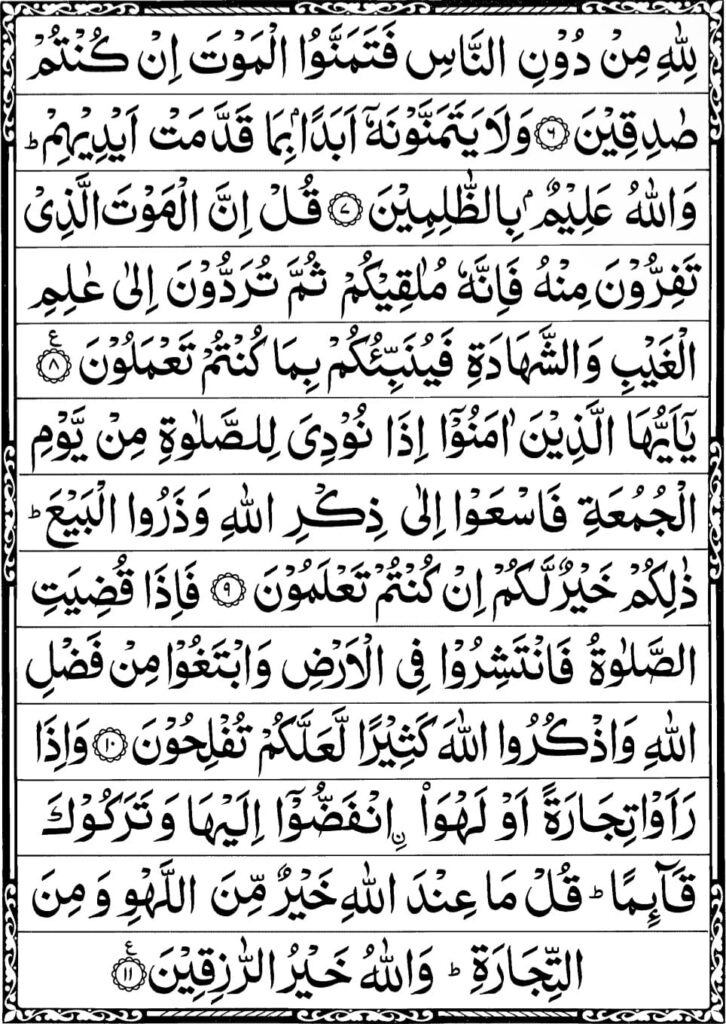 لِلّٰهِ مِنْ دُوْنِ النَّاسِ فَتَمَنَّوُا الْمَوْتَ اِنْ كُنْتُمْ
صٰدِقِيْنَ ۝۶ وَلَا يَتَمَنَّوْنَهٗۤ اَبَدًۢا بِمَا قَدَّمَتْ اَيْدِيْهِمْ ؕ
وَاللّٰهُ عَلِيْمٌۢ بِالظّٰلِمِيْنَ ۝۷ قُلْ اِنَّ الْمَوْتَ الَّذِيْ
تَفِرُّوْنَ مِنْهُ فَاِنَّهٗ مُلٰقِيْكُمْ ثُمَّ تُرَدُّوْنَ اِلٰى عٰلِمِ
الْغَيْبِ وَالشَّهَادَةِ فَيُنَبِّئُكُمْ بِمَا كُنْتُمْ تَعْمَلُوْنَ ۝۸ ع
يٰۤاَيُّهَا الَّذِيْنَ اٰمَنُوْۤا اِذَا نُوْدِيَ لِلصَّلٰوةِ مِنْ يَّوْمِ
الْجُمُعَةِ فَاسْعَوْا اِلٰى ذِكْرِ اللّٰهِ وَذَرُوا الْبَيْعَ ؕ
ذٰلِكُمْ خَيْرٌ لَّكُمْ اِنْ كُنْتُمْ تَعْلَمُوْنَ ۝۹ فَاِذَا قُضِيَتِ
الصَّلٰوةُ فَانْتَشِرُوْا فِى الْاَرْضِ وَابْتَغُوْا مِنْ فَضْلِ
اللّٰهِ وَاذْكُرُوا اللّٰهَ كَثِيْرًا لَّعَلَّكُمْ تُفْلِحُوْنَ ۝۱۰ وَاِذَا
رَاَوْا تِجَارَةً اَوْ لَهْوَا۟ ۨانْفَضُّوْۤا اِلَيْهَا وَتَرَكُوْكَ
قَآئِمًا ؕ قُلْ مَا عِنْدَ اللّٰهِ خَيْرٌ مِّنَ اللَّهْوِ وَمِنَ
التِّجَارَةِ ؕ وَاللّٰهُ خَيْرُ الرّٰزِقِيْنَ ۝۱۱ ع